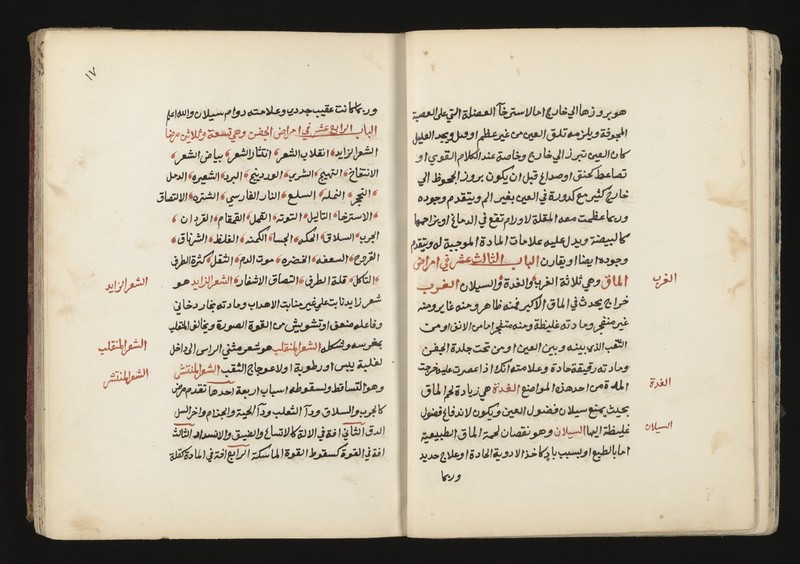 هو بروزها الي خارج اما لاسترخآ العضلة التي على العصبة
المجوفة ويلزمه تلق العين من غير عظم او وبجد العليل
كان العين تبرز الي خارج وخاصة عند الكلام القوي او
تضاعط كخنق اوصداع قبل ان يكون بروز الجحوظ الي
خارج كثير مع كدورة في العين بغير الم ويتقدم وجوده
وربما عظمت معه المقلة لاورام تقع في الدماغ او تزاحمها
كالبيضة ويدل عليه علامات المادة الموجبة له ويتقدم
وجوده ايضا او يقارن الباب الثالث عشر في امراض
الماق وهي ثلاثة الغرب والغدة والسيلان الغرب
خراج يحدث في الماق الاكبر فمنه ظاهر ومنه غاير ومنه
غير منفجر ومادته غليظة ومنه منفجر اما من الانف او من
الثقب الذي بينه وبين العين او من تحت جلدة الجفن
ومادته رقيقة حادة وعلامته انك اذا عصرت عليه خرجت
المدة من احد هذه المواضع الغدة هي زيادة لحم الماق
بحيث يمنع سيلان فضول العين ويكون لاندفاع فضول
غليظة اليها السيلان وهو نقصان لحمة الماق الطبيعية
اما بالطبع او بسبب باد كاخذ الادوية الحادة او علاج حديد
وربما
الغرب
الغدة
السيلان
١٧
وربما كانت عقيب جدري وعلامته دوام سيلان والله اعلم
الباب الرابع عشر في امراض الجفن وهي تسعة وثلاثين مرضا
الشعر الزايد انقلاب الشعر انتثار الشعر بياض الشعر
الانتفاخ التهيج الشري الوردينج البرد الشعيرة الدمل
التحجر النمله السلع النار الفارسي الشتره الالتصاق
الاسترخا التاليل التوته القمل القمقام القردان
الجرب السلاق الحكه الجسا الكمنه الغلظ الشرناق
القروح السعفه الخضره موت الدم الثقل كثرة الطرف
التاكل قلة الطرف التصاق الاشفار الشعر الزايد هو
شعر زايد نابت على غير منابت الاهداب ومادته بخار دخاني
وفاعله ضعف او تشويش من القوة المصورة ويخالف المنقلب
بمغرسه وشكله الشعر المنقلب هو شعر مثني الراس الى داخل
لغلبة يبس او رطوبة او لاعوجاج الثقب الشعر المنتثر
وهو التساقط ولسقوطه اسباب اربعة احدها تقدم مرض
كالجرب والسلاق ودآ الثعلب ودآ الحية والجذام واخر السل
الدق الثاني افة في الالة كالاتساع والضيق والانسداد الثالث
افة في القوة كسقوط القوة الماسكة الرابع افة في المادة كقلة
الشعر الزايد
الشعر المنقلب
الشعر المنتثر